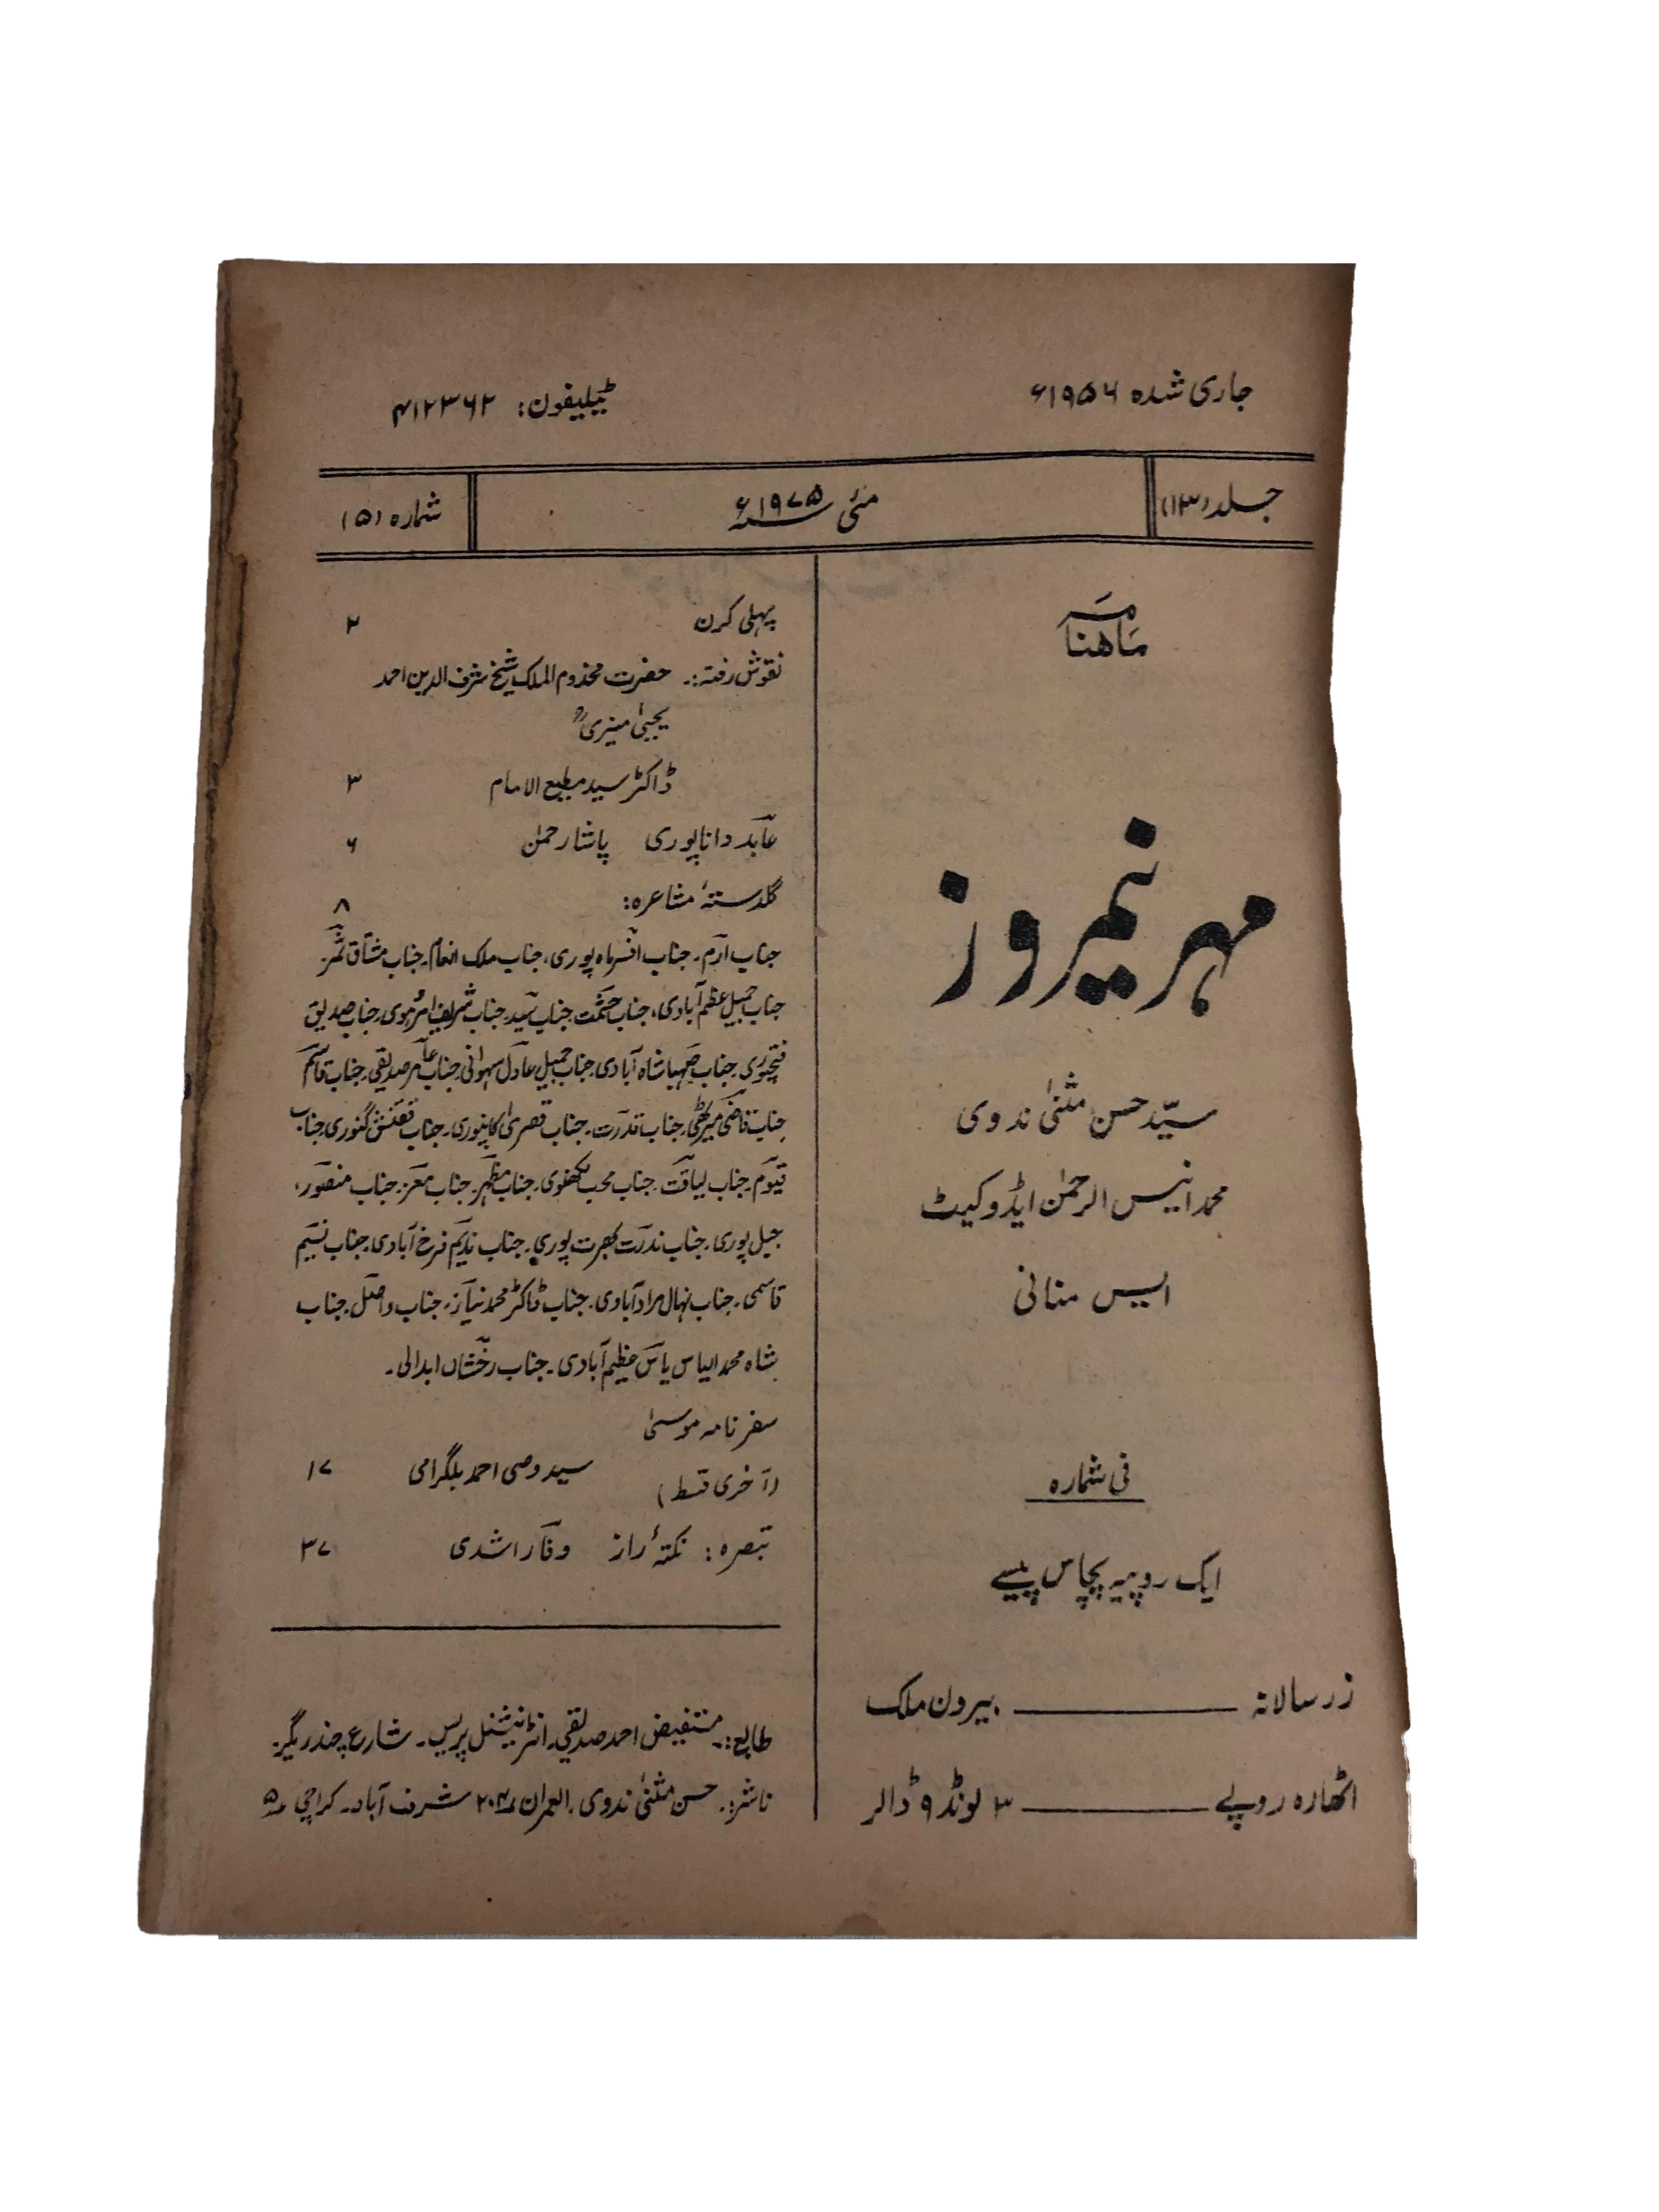 جاری شدہ ۱۹۵۶ء
ٹیلیفون: ۴۱۲۳۶۲
جلد (۱۳)
مئی ۱۹۷۵ء
شمارہ (۵)
ماہنامہ
مہر نیمروز
سیّد حسن مثنیٰ ندوی
محمد انیس الرحمٰن ایڈوکیٹ
ایس منانی
فی شمارہ
ایک روپیہ پچاس پیسے
زر سالانہ ــــــ بیرون ملک
اٹھارہ روپے ــــــ ۳ پونڈ ۹ ڈالر
پہلی کرن ۲
نقوش رفتہ:۔ حضرت مخدوم الملک شیخ شرف الدین احمد
یحییٰ منیریؒ
ڈاکٹر سید مطیع الامام ۳
عابد داناپوری پاشا رحمٰن ۶
گلدستۂ مشاعرہ: ۸
جناب ارم۔ جناب افسر ماہ پوری، جناب ملک انعام۔ جناب مشتاق ثمر۔
جناب جمیل عظیم آبادی، جناب حشمت جناب سید۔ جناب شریف امروہوی۔ جناب صدیق
فتحپوری۔ جناب صہبا شاہ آبادی۔ جناب جمیل عادل سہوانی۔ جناب عامر صدیقی۔ جناب قاسم
جناب قاضی میرٹھی۔ جناب قدرت۔ جناب قصری کانپوری۔ جناب گنوری۔ جناب
قیوم۔ جناب لیاقت۔ جناب محب لکھنوی۔ جناب مظہر۔ جناب معز۔ جناب منصور،
جبل پوری۔ جناب ندرت بھرت پوری۔ جناب ندیم فرخ آبادی۔ جناب نسیم
قاسمی۔ جناب نہال مراد آبادی۔ جناب ڈاکٹر محمد نیاز۔ جناب واصل۔ جناب
شاہ محمد الیاس یاس عظیم آبادی۔ جناب رخشاں ابدالی۔
سفر نامہ موسیٰ
(آخری قسط) سید وصی احمد بلگرامی ۱۷
تبصرہ: نکتۂ راز وفا راشدی ۳۷
طابع:۔ مستفیض احمد صدیقی۔ انٹرنیشنل پریس۔ شارع چندریگر۔
ناشر:۔ حسن مثنیٰ ندوی۔ العمران ۲۰۴ شرف آباد۔ کراچی ۵